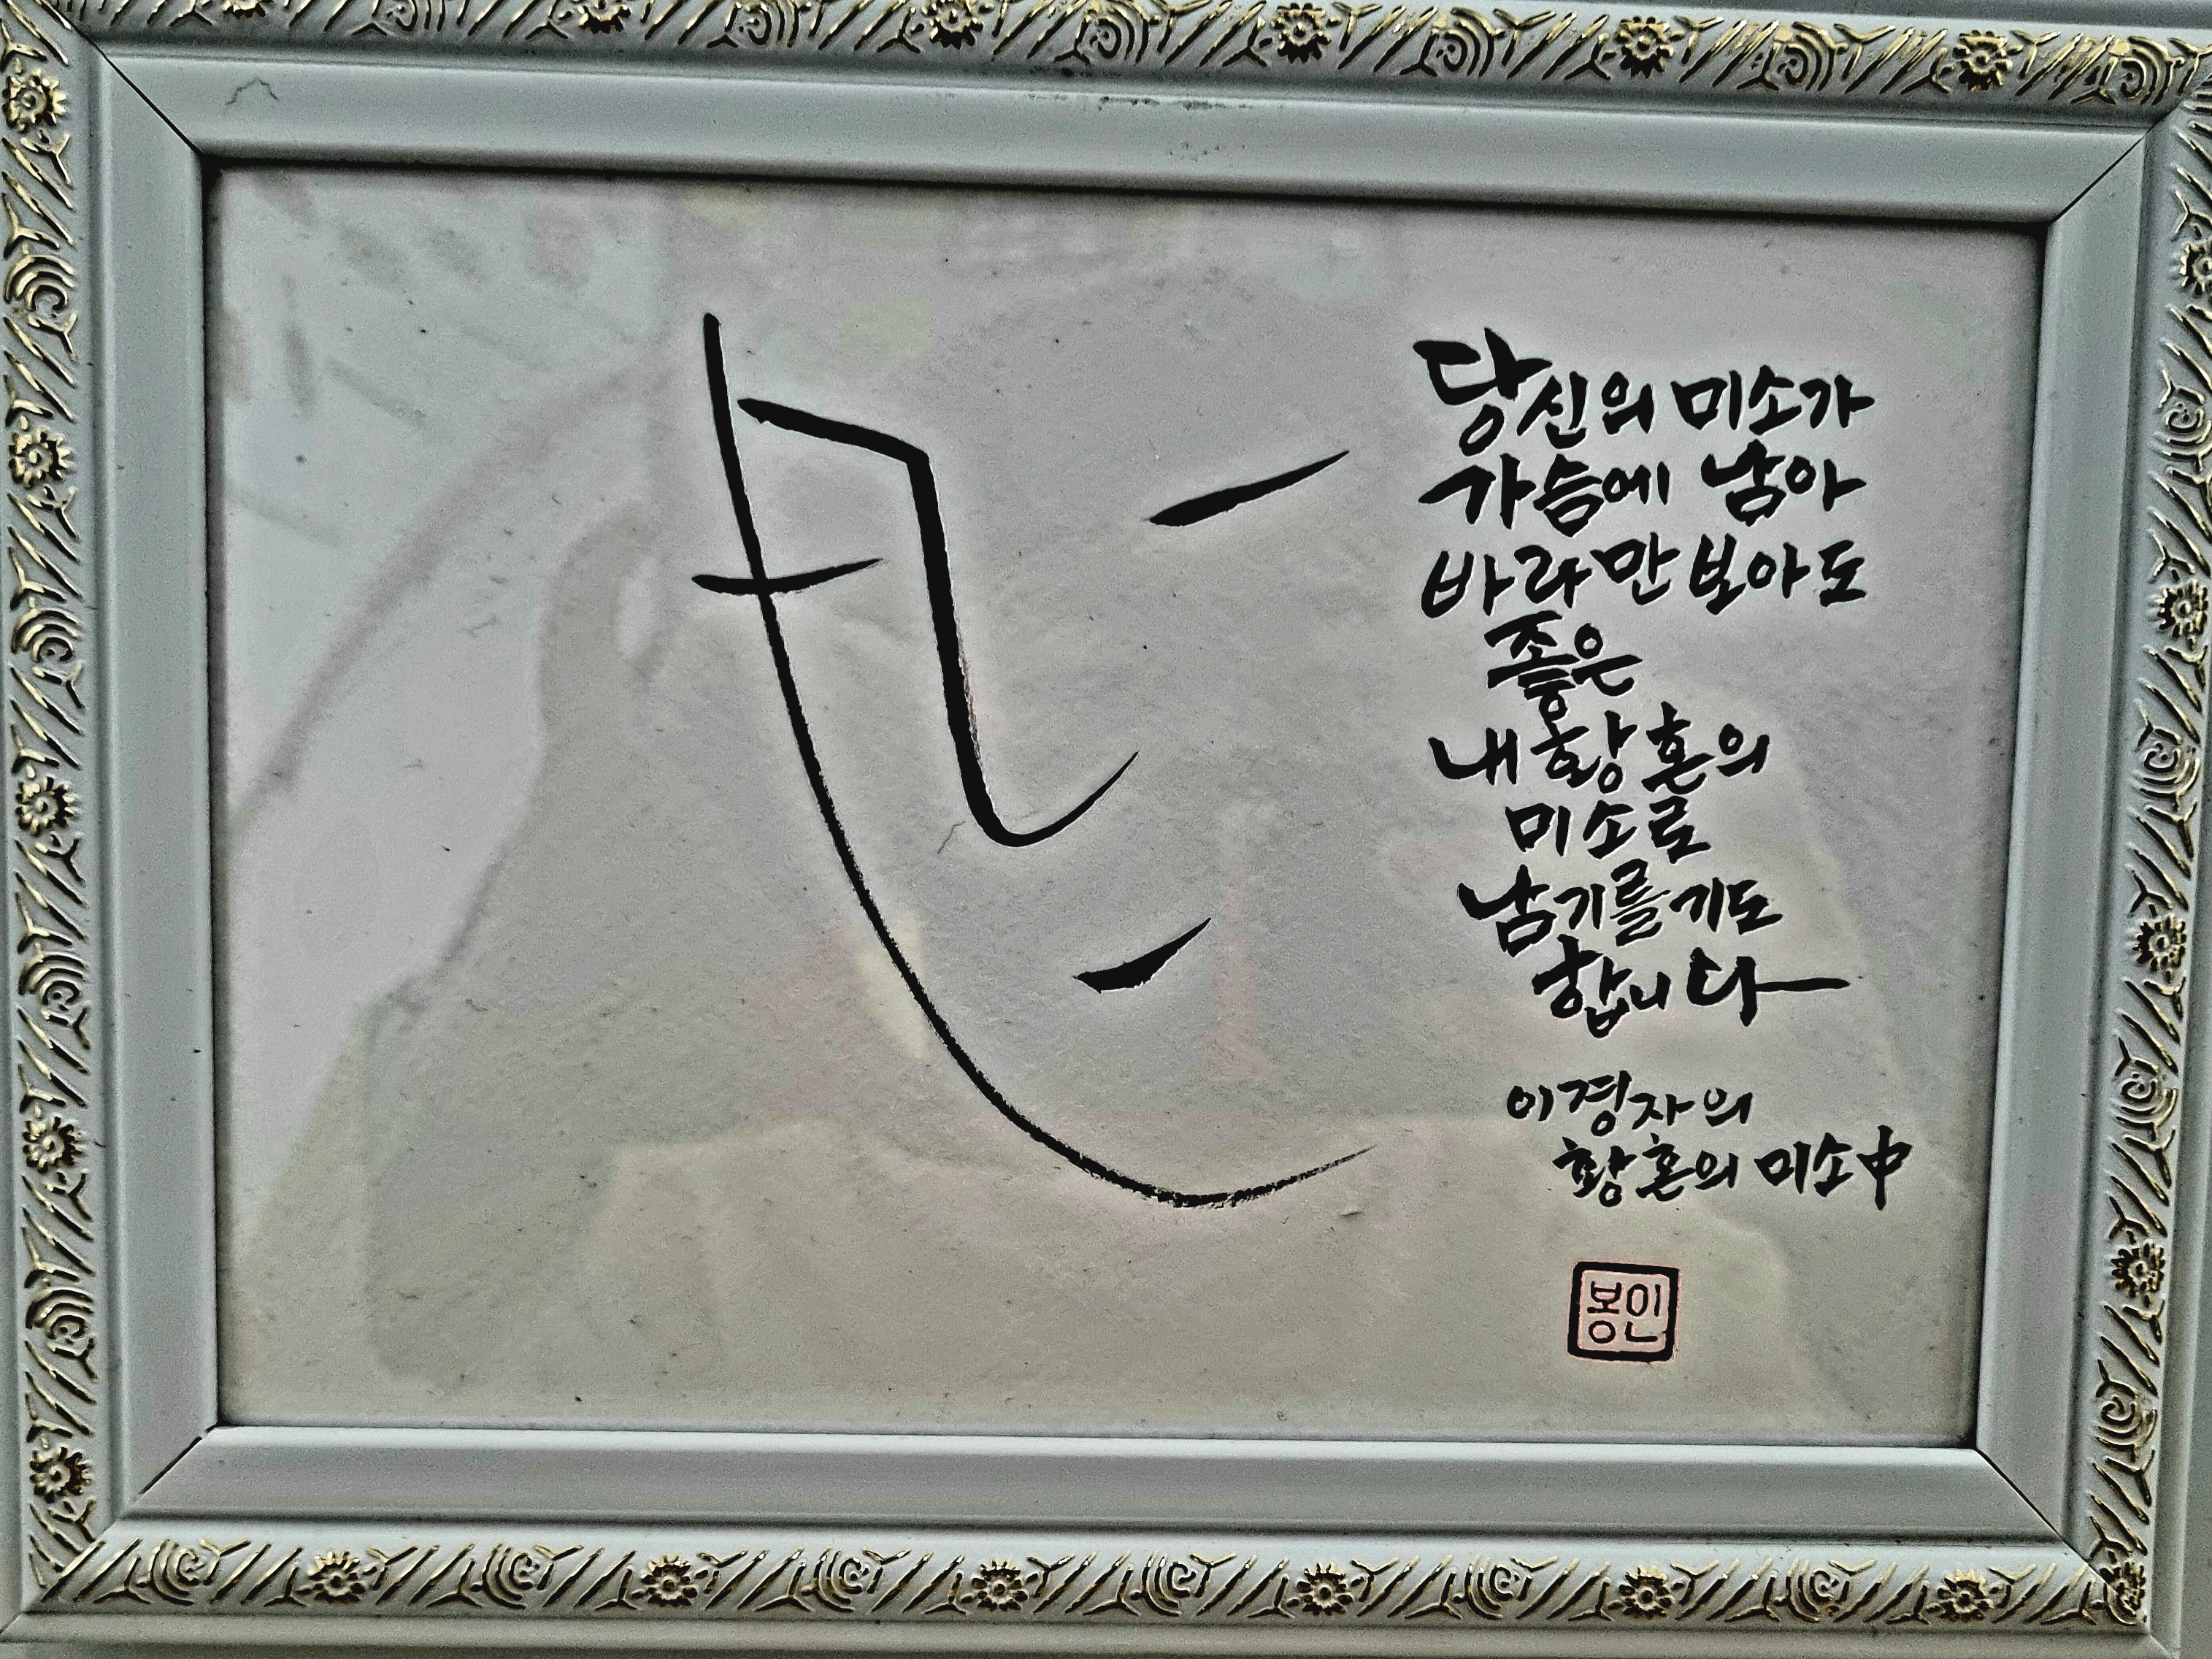 당신의 미소가
가슴에 남아
바라만 보아도
좋은
내 황혼의
미소로
남기를 기도
합니다
이경자의
황혼의 미소 中
봉인